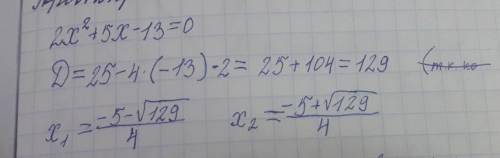 2x²+5x-13=0
D=25-4·(-13)·2= 25+104=129
x₁ = (-5-√129)/4 x₂ = (-5+√129)/4